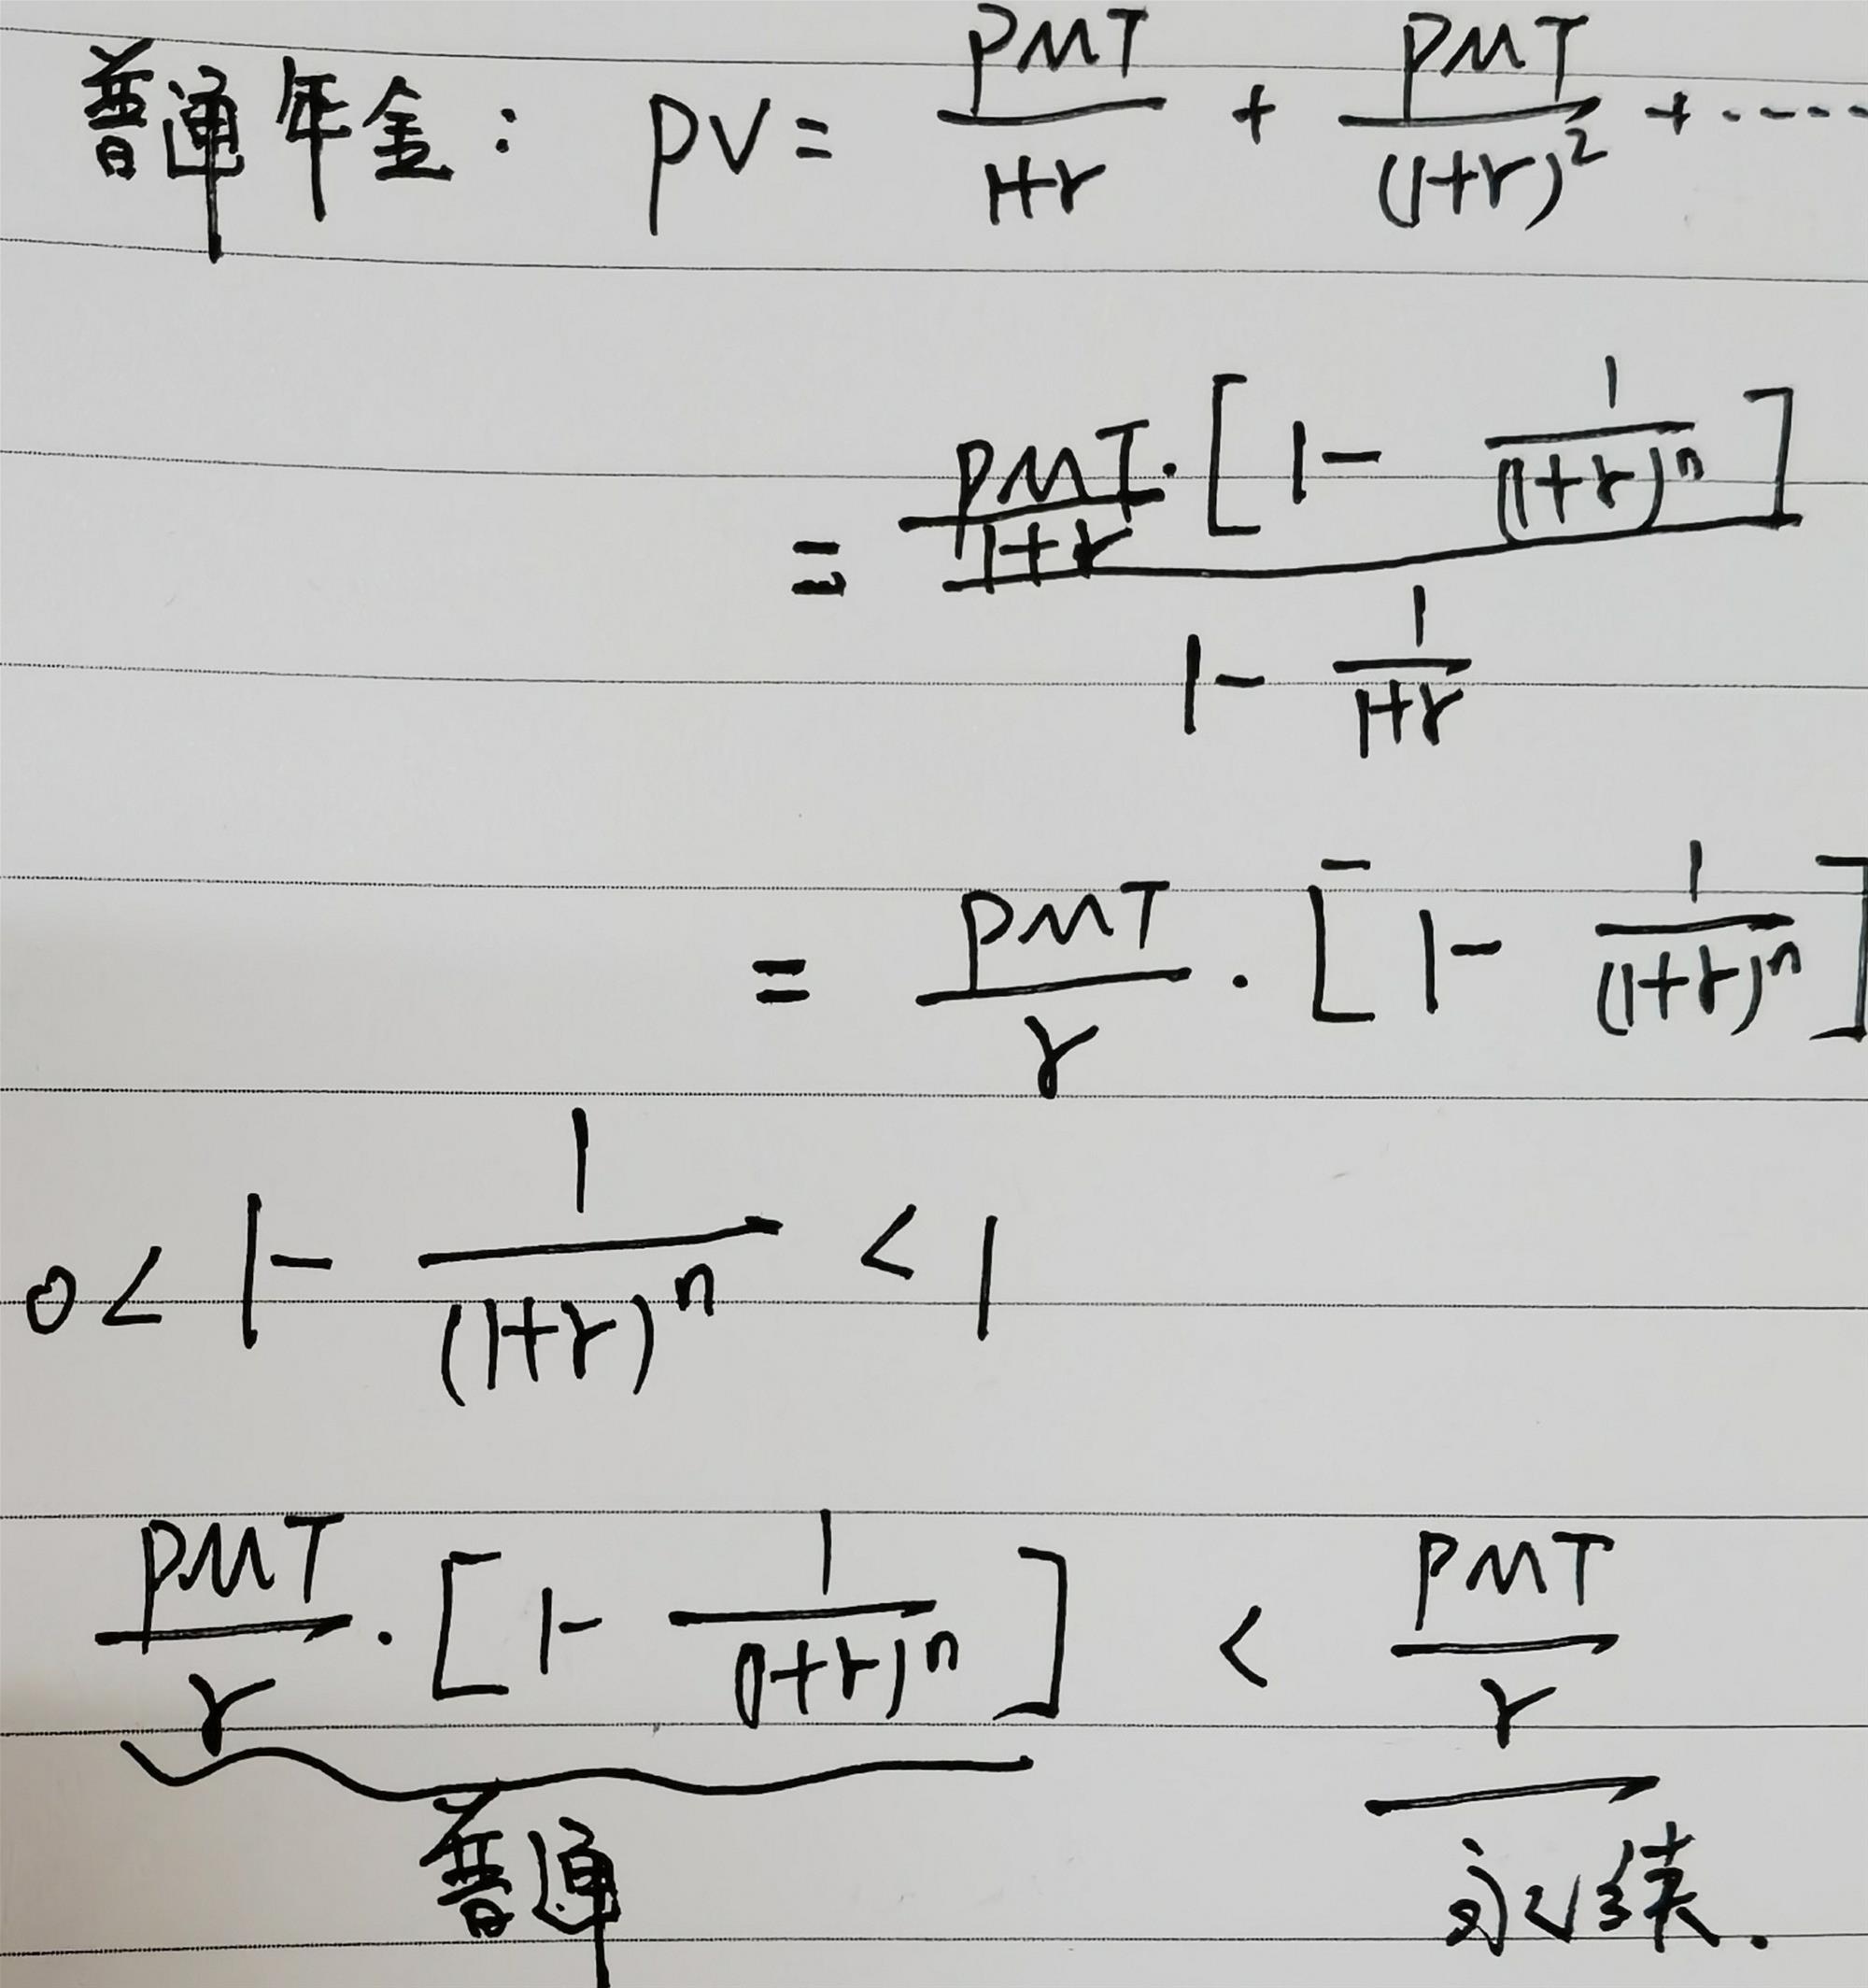 普通年金: PV = PMT/(1+r) + PMT/(1+r)² + ·----
= PMT/(1+r) · [1 - 1/(1+r)ⁿ] / (1 - 1/(1+r))
= PMT/r · [1 - 1/(1+r)ⁿ]
0 < 1 - 1/(1+r)ⁿ < 1
PMT/r · [1 - 1/(1+r)ⁿ] < PMT/r
普通 永续.